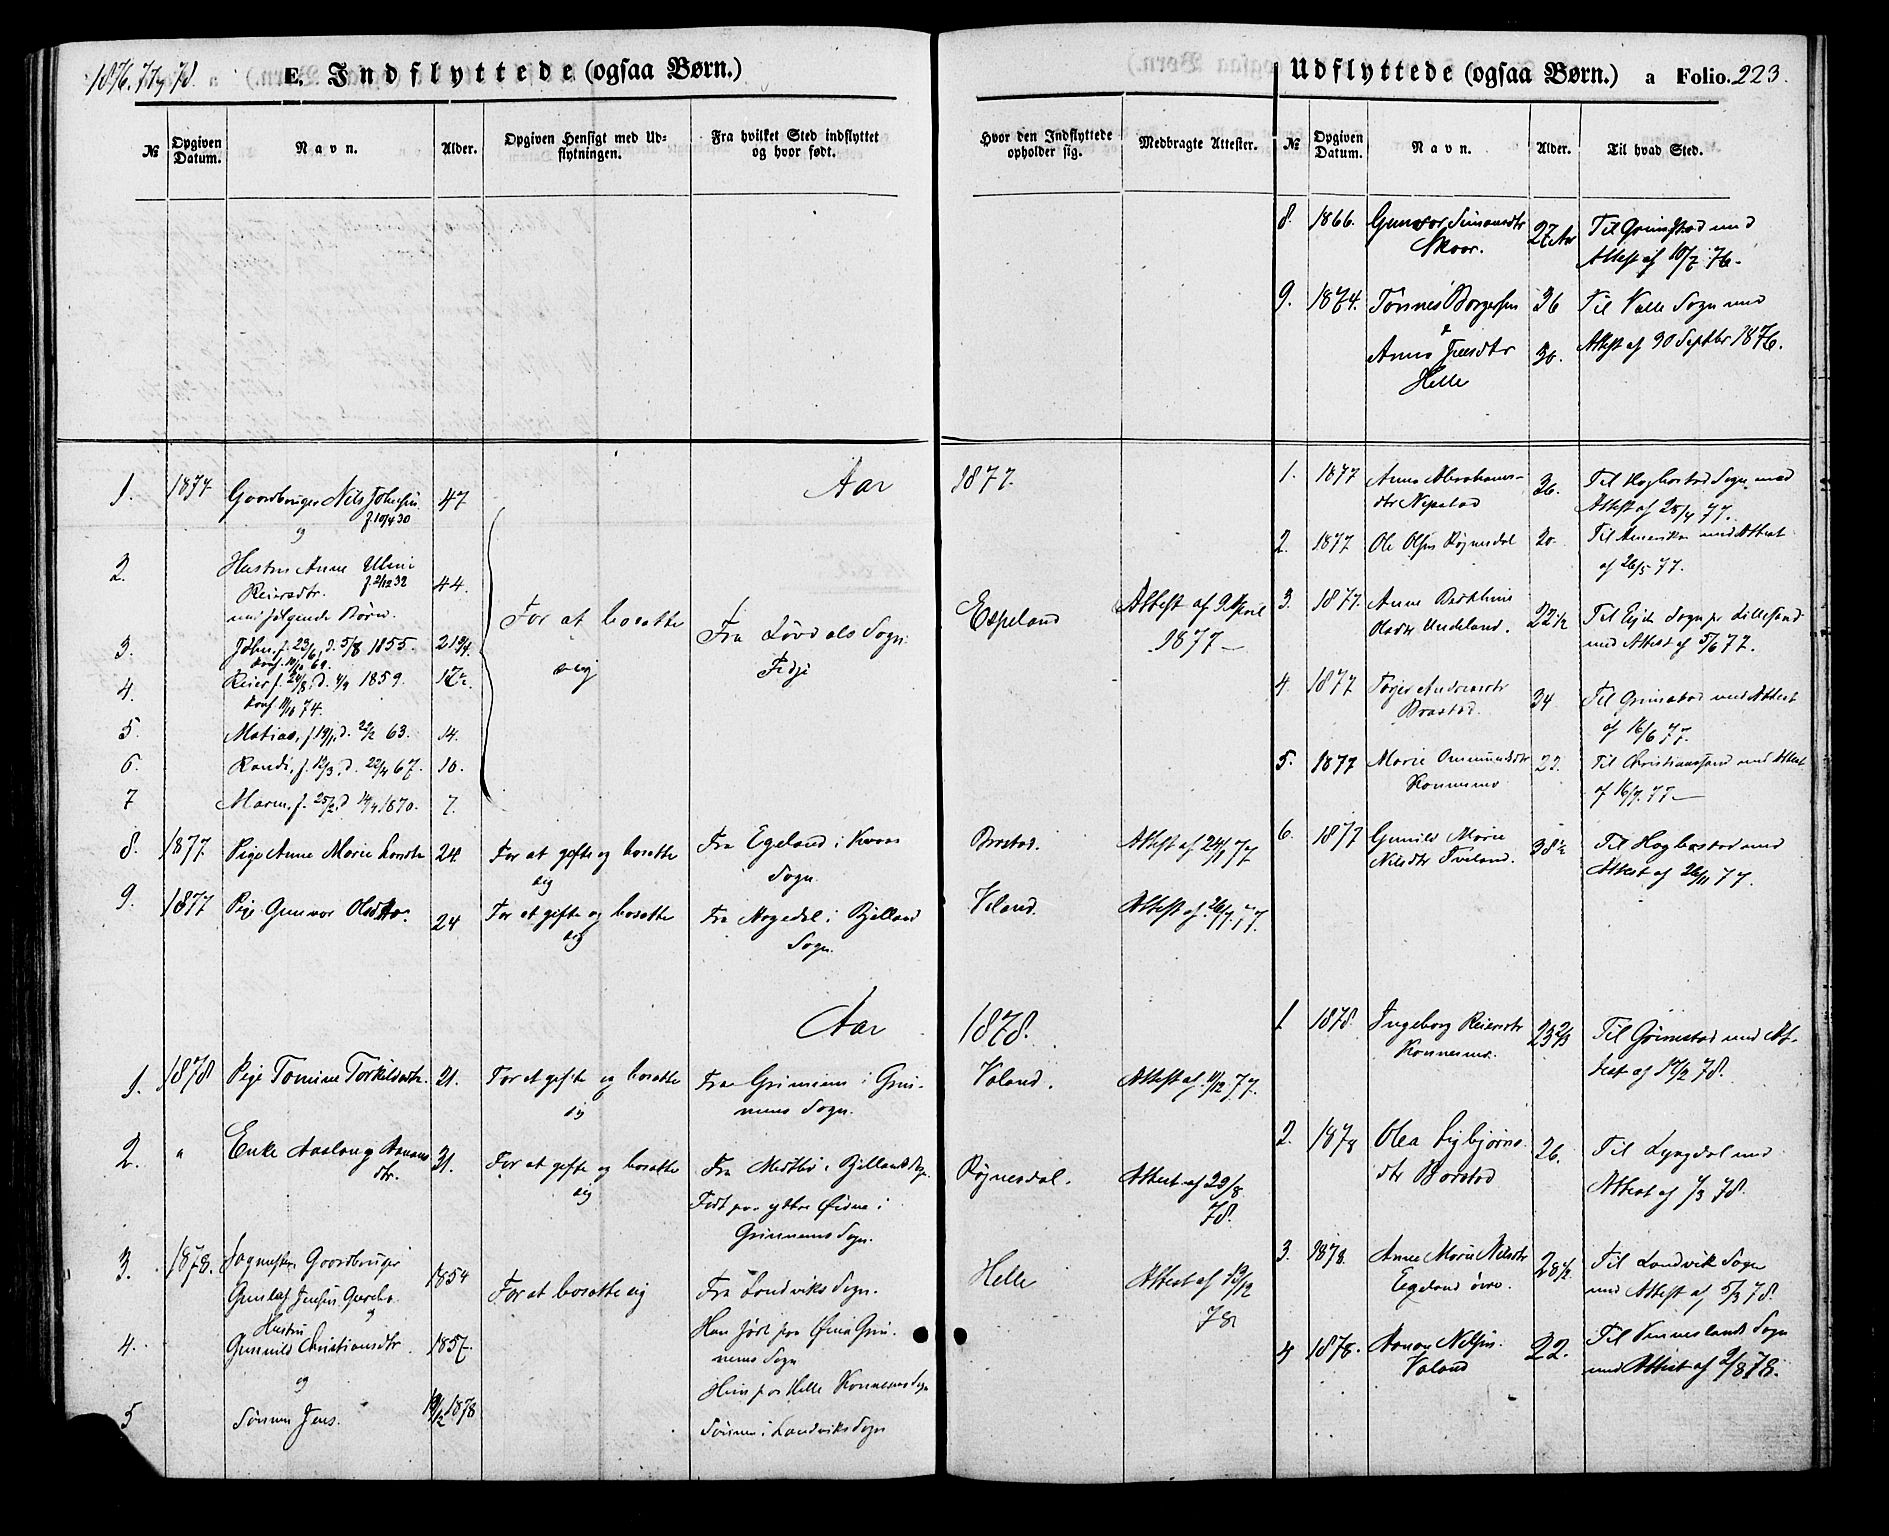 1876. 77 og 78.
E. Indflyttede (ogsaa Børn.)
№ Opgiven Datum. Navn. Alder. Opgiven Hensigt med Udflytningen. Fra hvilket Sted indflyttet og hvor født.
Aar
1. 1877 Gaardbruger Nils Johnsen 47
f. 10/4 30
og
2. Hustru Anne
f. 2/12 32
Reiersdtr. 44.
med følgende Børn.
For at bosætte sig
Fra Lovdals Sogn.
3. John f. 23/6, d. 5/8 1855. 21 3/4
4. Reier f. 24/8, d. 4/9 1859. 17½
konf. 74.
5. Matias, 63. 14.
6. Randi, f. 12/3, d. 22/4 67. 10.
7 Maren, f. 25/2, d 1870. 7.
8. 1877. Pige Anne Marie 24. For at gifte og bosætte sig Fra Egeland i Kvaas Sogn.
9. 1877 Pige Gunvor Olsdtr. 24 For at gifte og bosætte sig Fra i Bjelland Sogn.
Aar
1. 1878 Pige Tomine Torkildsdtr. 21. For at gifte og bosætte sig Fra i Grinnems Sogn.
2. " Enke Aaslaug Aanensdtr. 31. For at gifte og bosætte sig Fra i Bjellands Sogn.
Født paa yttre Øidne i
Grinnems Sogn.
3. 1878. Gaardbruger
Gunlef Jensen 1854 For at bosætte sig Fra Landviks Sogn.
og
Hustru
4. Gunvild Christiansdtr. 1857.
Han født paa Øina Grinnems Sogn
Hun paa Helle Konnesmo Sogn
og
5 Sønnen Jens. 1878
Sønnen i Landviks Sogn
Udflyttede (ogsaa Børn.) a Folio. 223.
Hvor den Indflyttede opholder sig. Medbragte Attester. № Opgiven Datum. Navn. Alder. Til hvad Sted.
8. 1866. Gunvor Simonsdtr 27 Aar Til Grimstad med
Skaar. Attest af 10/7 76.
9. 1874. Tønnes Børgesen 36 Til Valle Sogn med
& Attest af 30 Septbr 1876.
Anna 30.
Helle
1877.
Espeland Attest af 9 April
1877
Brastad. Attest af 77
Voland. Attest af 77.
1. 1877 Anna Abrahamsdtr 36. Til Hægbostad Sogn med
Attest af 28/4 77.
2. 1877 Ole Olsen Røynesdal 20. Til Amerika med Attest
af 26/5 77.
3. 1877. Anne Berthine 22½ Til Sogn pr Lillesand
Olsdtr Undeland. med Attest af 5/6 77.
4. 1877 Andreasdtr 34 Til Grimstad med Attest
Brastad. af 16/6 77.
5. 1877 Marie Omundsdtr 22. Til Christianssand med Attest
Konnesmo af 16/9. 77
6. 1877 Gunvild Marie 38½ Til Hægbostad med
Nilsdtr Tveiland. Attest af 26/11 77.
1878.
Voland. Attest af 11/12 77.
Røynesdal. Attest af 29/8
78.
Helle Attest af 13/12
78
1 1878. Ingeborg Reiersdtr 23 2/3 Til Grimstad med Attest
Konnesmo. af 12/2 78.
2. 1878 Olea Sigbjørnsdtr 26. Til Lyngdal med
Brastad Attest af 7/3 78.
3. 1878. Anne Marie Nilsdtr 28½ Til Landvik Sogn
Egeland øvre. med Attest af 5/3 78.
4 1878. Aanen Nilsen 22. Til Vennesland Sogn
Voland med Attest af 2/8 78.